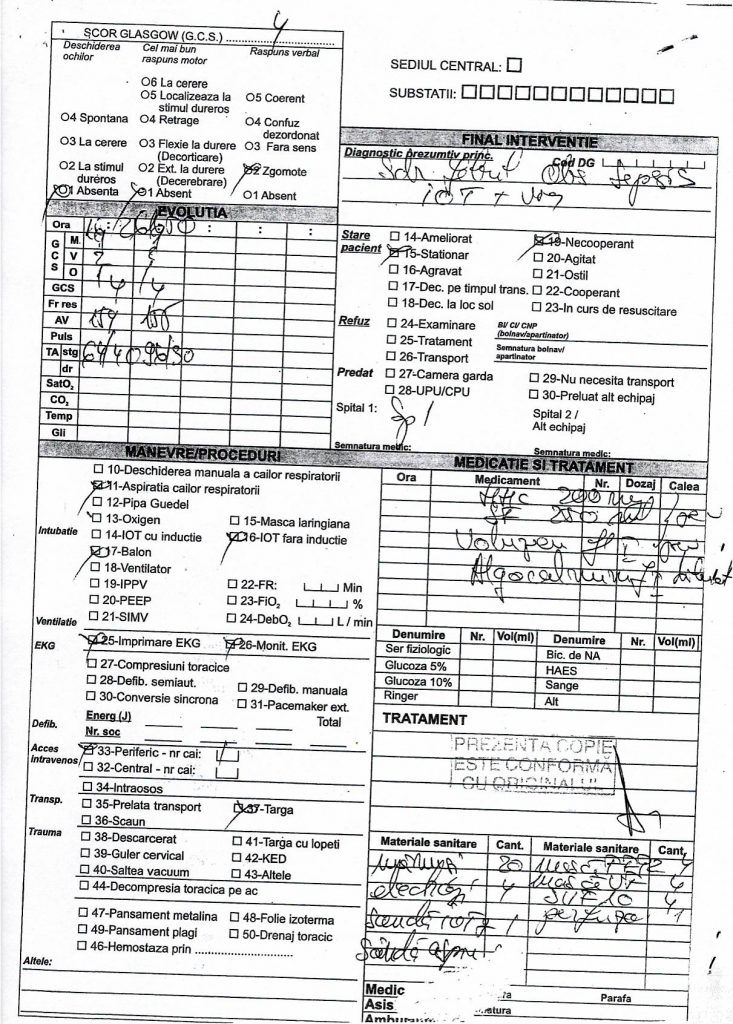 SCOR GLASGOW (G.C.S.) .......................... 4
Deschiderea ochilor
Cel mai bun raspuns motor
Raspuns verbal
O6 La cerere
O5 Localizeaza la stimul dureros
O5 Coerent
O4 Spontana
O4 Retrage
O4 Confuz dezordonat
O3 La cerere
O3 Flexie la durere (Decorticare)
O3 Fara sens
O2 La stimul dureros
O2 Ext. la durere (Decerebrare)
O2 Zgomote
O1 Absenta
O1 Absent
O1 Absent
SEDIUL CENTRAL:
SUBSTATII:
FINAL INTERVENTIE
Diagnostic prezumtiv princ.
Cod DG
Obs Sepsis
IOT +
EVOLUTIA
Ora
GCS
M
V
O
GCS
Fr res
AV
Puls
TA stg
dr
SatO₂
CO₂
Temp
Gli
Stare pacient
14-Ameliorat
15-Stationar
16-Agravat
17-Dec. pe timpul trans.
18-Dec. la loc sol
19-Necooperant
20-Agitat
21-Ostil
22-Cooperant
23-In curs de resuscitare
Refuz
24-Examinare
25-Tratament
26-Transport
BI/ CI/ CNP (bolnav/apartinator)
Semnatura bolnav/ apartinator
Predat
27-Camera garda
28-UPU/CPU
29-Nu necesita transport
30-Preluat alt echipaj
Spital 1:
Spital 2 /
Alt echipaj
Semnatura medic:
Semnatura medic:
MANEVRE/PROCEDURI
10-Deschiderea manuala a cailor respiratorii
11-Aspiratia cailor respiratorii
12-Pipa Guedel
13-Oxigen
15-Masca laringiana
Intubatie
14-IOT cu inductie
16-IOT fara inductie
17-Balon
18-Ventilator
19-IPPV
22-FR: Min
20-PEEP
23-FiO₂ %
Ventilatie
21-SIMV
24-DebO₂ L / min
EKG
25-Imprimare EKG
26-Monit. EKG
27-Compresiuni toracice
28-Defib. semiaut.
29-Defib. manuala
30-Conversie sincrona
31-Pacemaker ext.
Defib.
Energ (J)
Total
Nr. soc
Acces intravenos
33-Periferic - nr cai:
32-Central - nr cai:
34-Intraosos
Transp.
35-Prelata transport
37-Targa
36-Scaun
Trauma
38-Descarcerat
41-Targa cu lopeti
39-Guler cervical
42-KED
40-Saltea vacuum
43-Altele
44-Decompresia toracica pe ac
47-Pansament metalina
48-Folie izoterma
49-Pansament plagi
50-Drenaj toracic
46-Hemostaza prin ..............................
Altele:
MEDICATIE SI TRATAMENT
Ora
Medicament
Nr.
Dozaj
Calea
HHC 200 mg
SF 250 ml
Voluven
Algocalmin
Denumire
Nr.
Vol(ml)
Denumire
Nr.
Vol(ml)
Ser fiziologic
Bic. de NA
Glucoza 5%
HAES
Glucoza 10%
Sange
Ringer
Alt
TRATAMENT
PREZENTA COPIE
ESTE CONFORMĂ
CU ORIGINALUL
Materiale sanitare
Cant.
Materiale sanitare
Cant.
20
electrozi 4
Sondă IOT 1
Sondă
Medic
Asis
Parafa